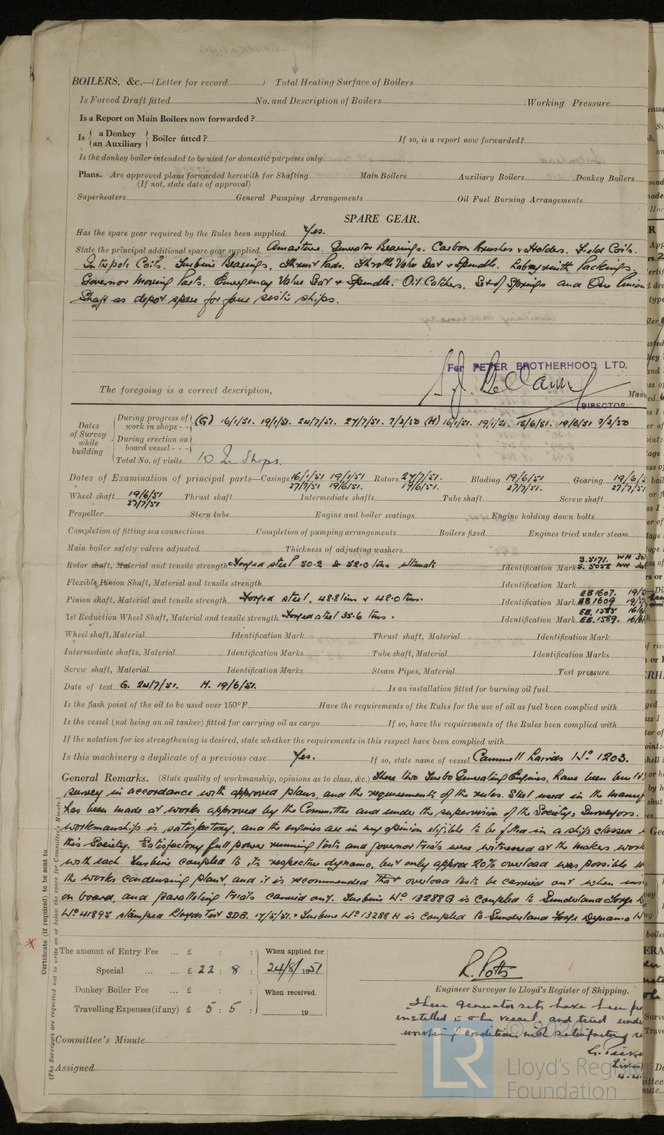 BOILERS, &c.—(Letter for record ) Total Heating Surface of Boilers
Is Forced Draft fitted No. and Description of Boilers Working Pressure
Is a Report on Main Boilers now forwarded ?
Is { a Donkey an Auxiliary } Boiler fitted ? If so, is a report now forwarded?
Is the donkey boiler intended to be used for domestic purposes only
Plans. Are approved plans forwarded herewith for Shafting Main Boilers Auxiliary Boilers Donkey Boilers
(If not, state date of approval)
Superheaters General Pumping Arrangements Oil Fuel Burning Arrangements
SPARE GEAR.
Has the spare gear required by the Rules been supplied Yes.
State the principal additional spare gear supplied Armature. Generator Bearings. Carbon Brushes & Holders. Field Coils.
Interpole Coils. Turbine Bearings. Thrust Pads. Throttle Valve Seat & Spindle. Labyrinth Packings.
Governor Moving Parts. Emergency Valve Seat & Spindle. Oil Catchers. Set of Springs and One Pinion
Shaft as depot spare for four sister ships.
For PETER BROTHERHOOD LTD.
The foregoing is a correct description,
DIRECTOR
Dates of Survey while building
During progress of work in shops - - (G) 16/1/51. 19/1/51. 24/7/51. 27/7/51. 7/2/50 (H) 16/1/51. 19/1/51. 15/6/51. 19/6/51 7/2/50
During erection on board vessel - - -
Total No. of visits 10 In Shops.
Dates of Examination of principal parts—Casings 16/1/51 19/1/51 27/7/51 19/6/51. Rotors 27/7/51. 19/6/51. Blading 19/6/51 27/7/51. Gearing 19/6/5 27/7/51
Wheel shaft 19/6/51 27/7/51 Thrust shaft Intermediate shafts Tube shaft Screw shaft
Propeller Stern tube Engine and boiler seatings Engine holding down bolts
Completion of fitting sea connections Completion of pumping arrangements Boilers fixed Engines tried under steam
Main boiler safety valves adjusted Thickness of adjusting washers
Rotor shaft, Material and tensile strength Forged steel 50.2 & 52.0 tons ultimate Identification Mark
Flexible Pinion Shaft, Material and tensile strength Identification Mark
Pinion shaft, Material and tensile strength Forged steel, 48.2 tons & 48.0 tons. Identification Mark EB1607. EB1609
1st Reduction Wheel Shaft, Material and tensile strength Forged steel 35.6 tons. Identification Mark EB.1585 EB.1589.
Wheel shaft, Material Identification Mark Thrust shaft, Material Identification Mark
Intermediate shafts, Material Identification Marks Tube shaft, Material Identification Mark
Screw shaft, Material Identification Marks Steam Pipes, Material Test pressure
Date of test G. 24/7/51. H. 19/6/51. Is an installation fitted for burning oil fuel
Is the flash point of the oil to be used over 150°F. Have the requirements of the Rules for the use of oil as fuel been complied with
Is the vessel (not being an oil tanker) fitted for carrying oil as cargo If so, have the requirements of the Rules been complied with
If the notation for ice strengthening is desired, state whether the requirements in this respect have been complied with
Is this machinery a duplicate of a previous case Yes. If so, state name of vessel Cammell Lairds No 1203.
General Remarks. (State quality of workmanship, opinions as to class, &c.) These two Turbo Generating Engines, have been built
survey in accordance with approved plans, and the requirements of the rules. Steel used in the
has been made at works approved by the Committee and under the supervision of the Society's Surveyors.
workmanship is satisfactory, and the engines are in my opinion eligible to be fitted in a ship classed
this Society. Satisfactory full power running tests and governor trials were witnessed at the makers works
with each Turbine coupled to its respective dynamo, but only approx 20% overload was possible
the works condensing plant and it is recommended that overload tests be carried out when
on board, and paralleling trials carried out. Turbine No 13288G is coupled to Sunderland Forge
No 41895 stamped Lloyds Test SDB. 17/5/51. & Turbine No 13288H is coupled to Sunderland Forge Dynamo
Certificate (if required) to be sent to
(The Surveyors are requested not to write on or below the space for Committee's Minute.)
The amount of Entry Fee ... £ : : When applied for
Special ... ... £ 22 : 8 : 24/8/1951
Donkey Boiler Fee ... £ : : When received.
Travelling Expenses (if any) £ 5 : 5 : 19
R. Potts
Engineer Surveyor to Lloyd's Register of Shipping.
These generator sets have been
installed in the vessel, and tried under
working conditions with satisfactory
Committee's Minute
Assigned
LR
Lloyd's Register
Foundation